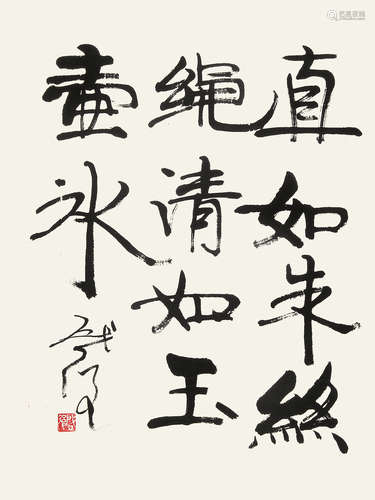 直如朱絲
繩清如玉
壺冰